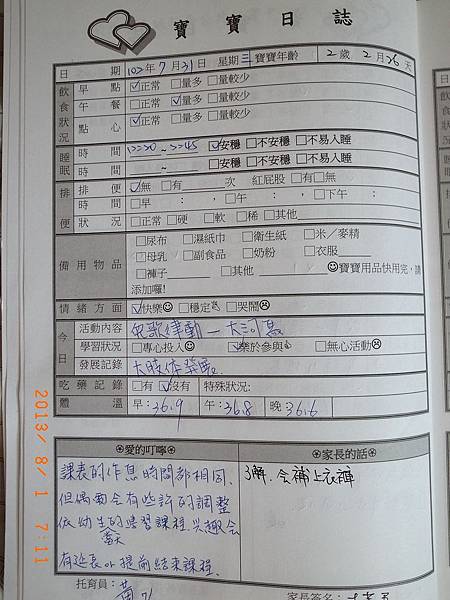 寶寶日誌
日期 102年7月31日 星期三 寶寶年齡 2歲2月26天
飲食狀況 早點 ☑正常 □量多 □量較少
午餐 □正常 ☑量多 □量較少
點心 ☑正常 □量多 □量較少
睡眠 時間 12:50~2:45 ☑安穩 □不安穩 □不易入睡
時間 ~ □安穩 □不安穩 □不易入睡
排便 排便 ☑無 □有 次 紅屁股 □有□無
時間 □早 : , □午 : , □下午 :
狀況 □正常 □硬 □軟 □稀 □其他
備用物品 □尿布 □濕紙巾 □衛生紙 □米/麥精
□母乳 □副食品 □奶粉 □衣服
□褲子 □其他 ☺寶寶用品快用完,請
添加囉!
情緒方面 ☑快樂☺ □穩定 □哭鬧☹
今日 活動內容 兒歌律動—大
學習狀況 □專心投入☺ ☑樂於參與 □無心活動☹
發展記錄 大肢作發展
吃藥記錄 □有 ☑沒有 特殊狀況:
體溫 早:36.9 午:36.8 晚:36.6
愛的叮嚀
課表的作息時間都相同,
但偶爾會有些許的調整
依幼生的學習課程.興趣會
當天
有延長or提前結束課程.
托育員:黃
家長的話
了解.会補上衣褲
家長簽名:
2013/ 8/ 1 7:11